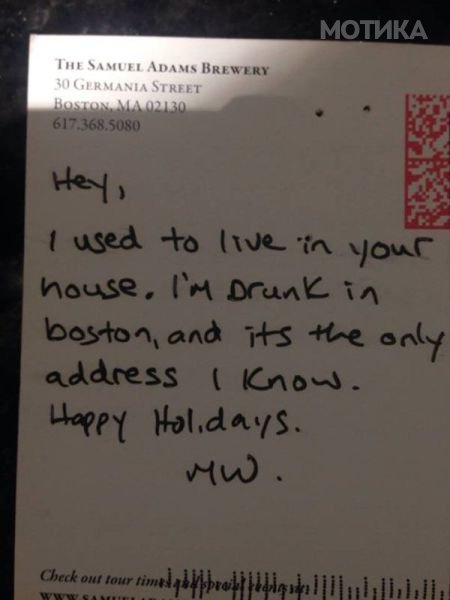 МОТИКА
The Samuel Adams Brewery
30 Germania Street
Boston, MA 02130
617.368.5080
Hey,
I used to live in your
house. I'm Drunk in
boston, and its the only
address I know.
Happy Holidays.
MW.
Check out tour times and special events at: